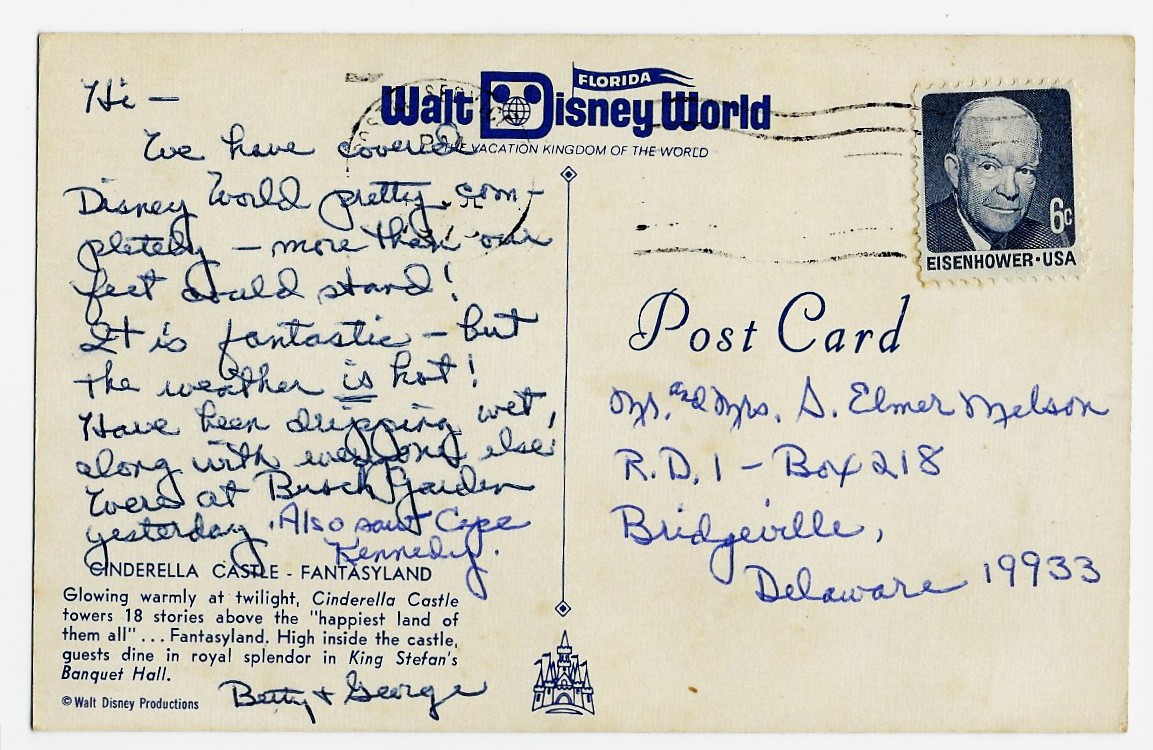 Hi —
We have covered
Disney World pretty com-
pletely — more than our
feet could stand!
It is fantastic — but
the weather is hot!
Have been dripping wet,
along with everyone else
Were at Busch Garden
yesterday. Also saw Cape
Kennedy.
CINDERELLA CASTLE - FANTASYLAND
Glowing warmly at twilight, Cinderella Castle
towers 18 stories above the "happiest land of
them all" ... Fantasyland. High inside the castle,
guests dine in royal splendor in King Stefan's
Banquet Hall.
© Walt Disney Productions
Betty + George
FLORIDA
Walt Disney World
THE VACATION KINGDOM OF THE WORLD
6c
EISENHOWER·USA
Post Card
Mr. and Mrs. S. Elmer Melson
R.D. 1 - Box 218
Bridgeville,
Delaware 19933